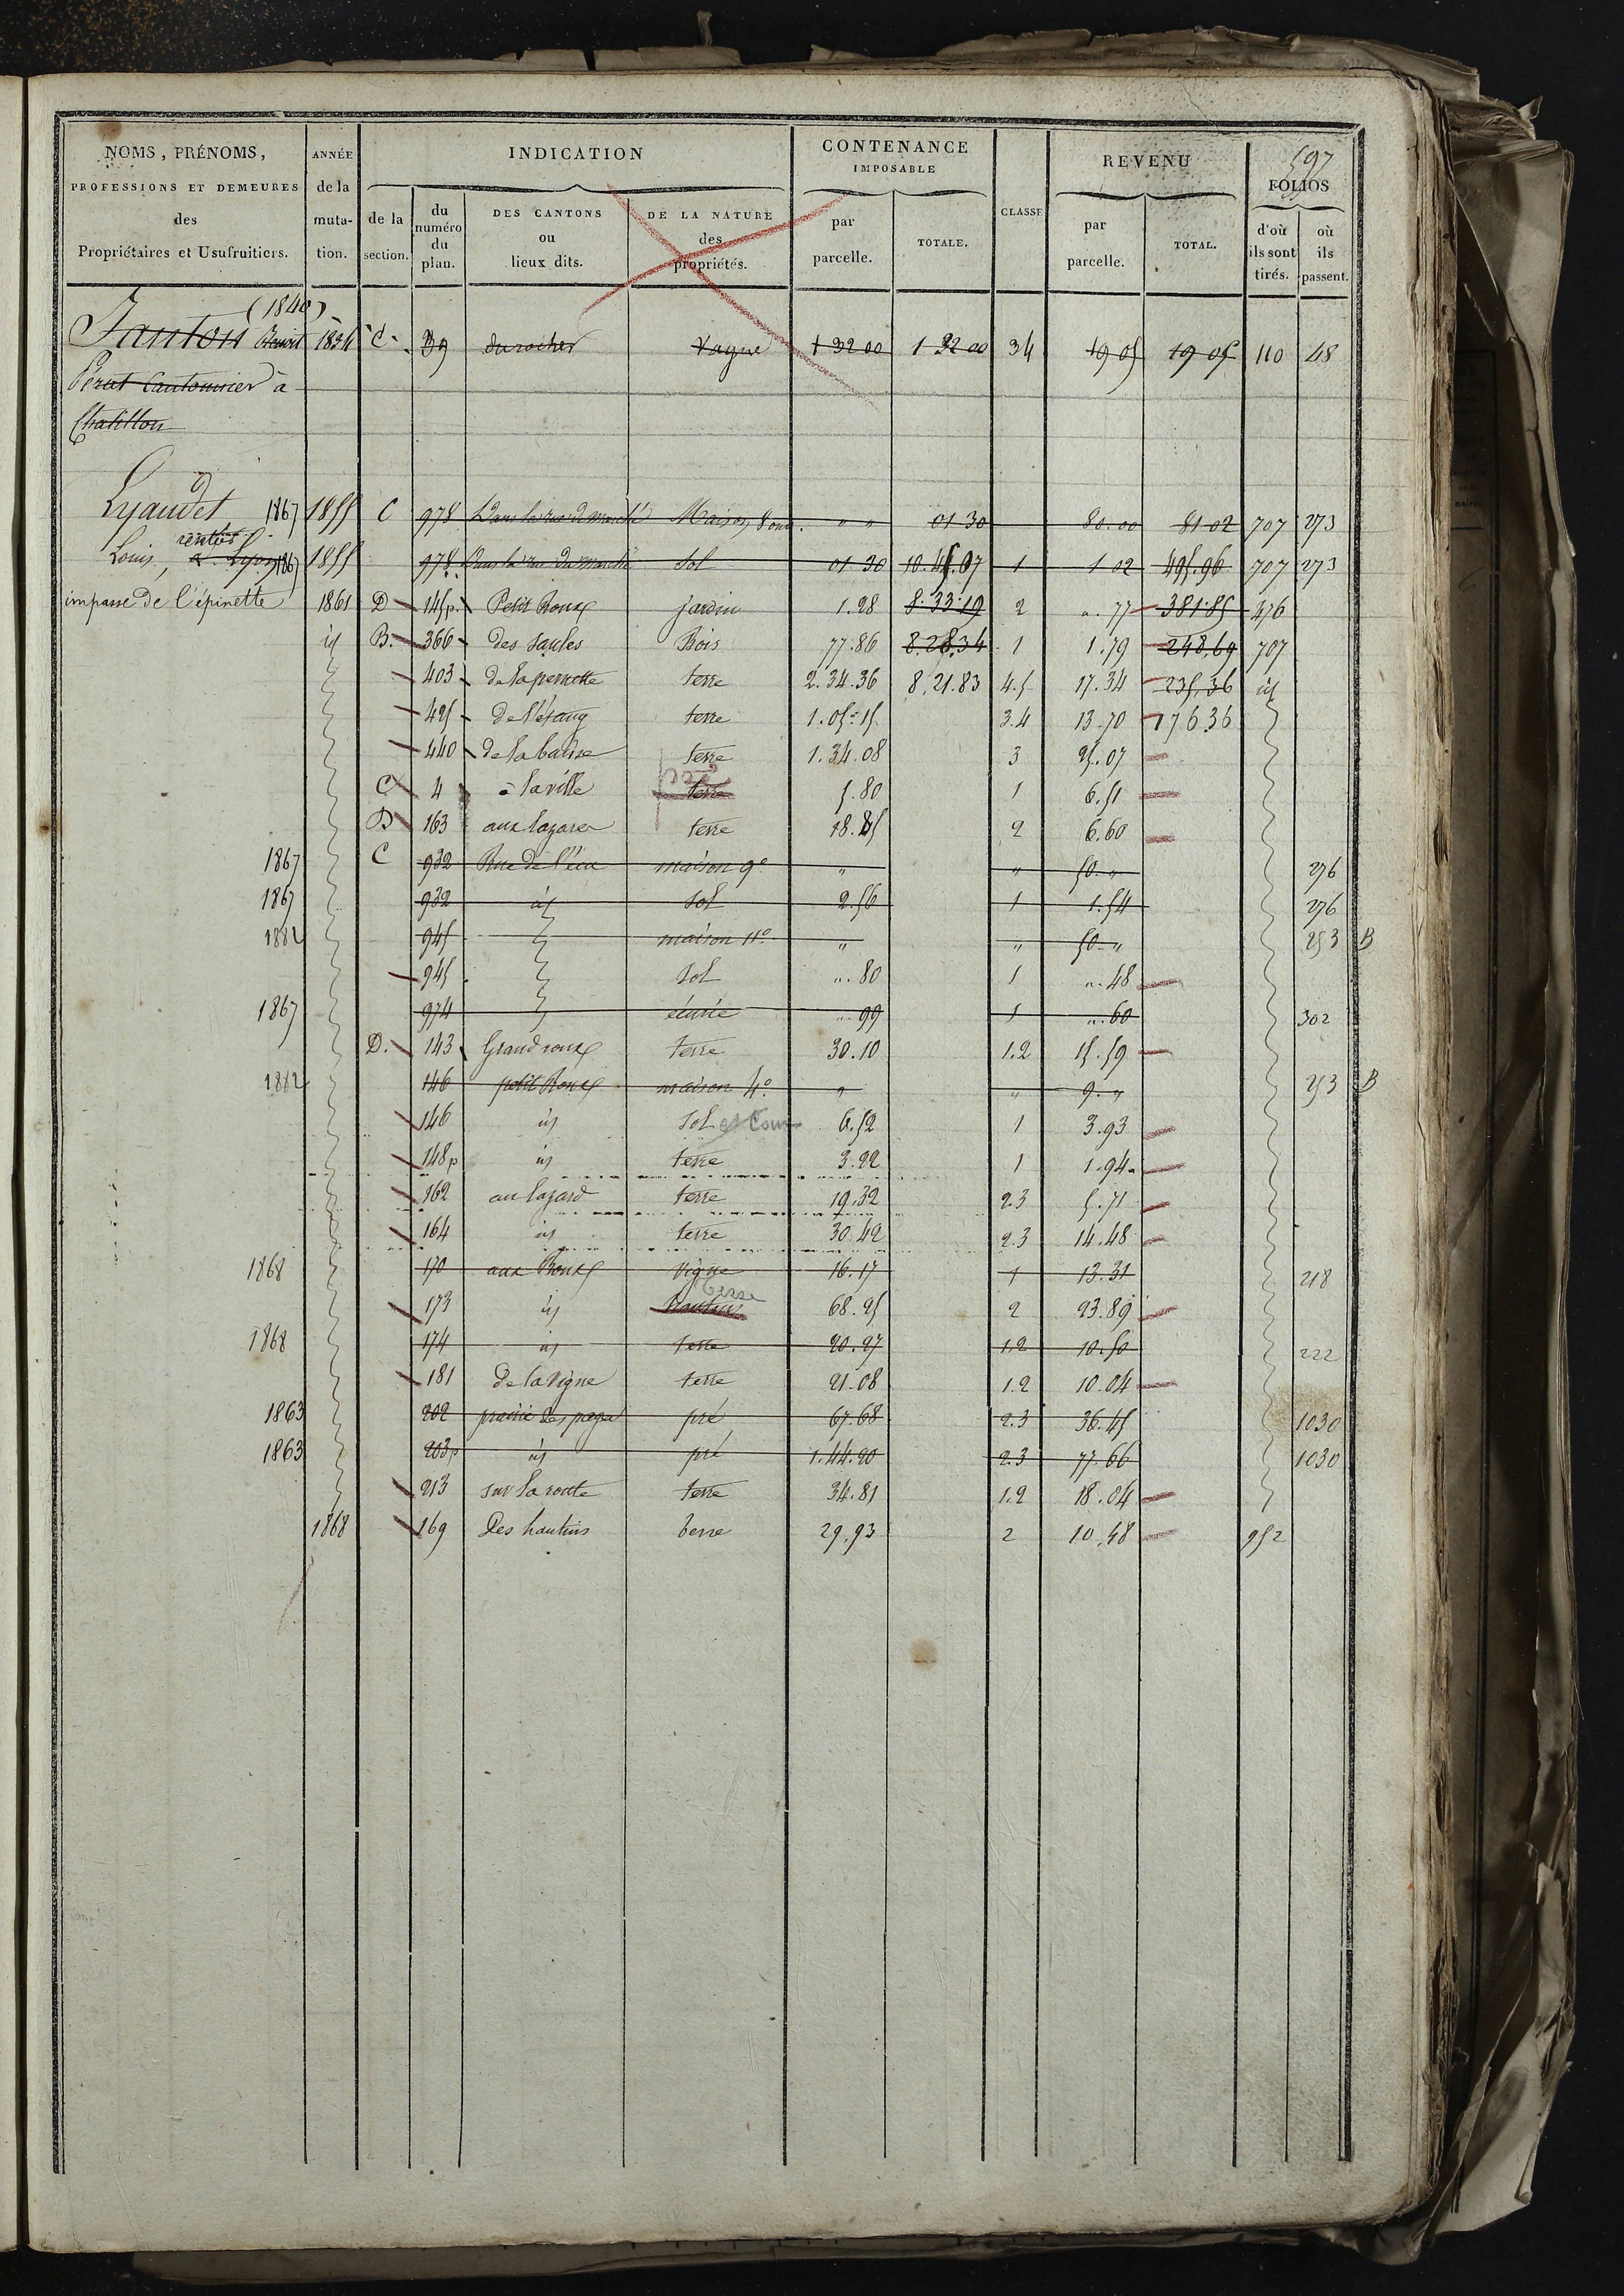 597
NOMS, PRÉNOMS, PROFESSIONS ET DEMEURES des Propriétaires et Usufruitiers.
ANNÉE de la muta- tion.
INDICATION
de la section.
du numéro du plan.
DES CANTONS ou lieux dits.
DE LA NATURE des propriétés.
CONTENANCE IMPOSABLE
par parcelle.
TOTALE.
CLASSE
REVENU
par parcelle.
TOTAL.
FOLIOS
d'où ils sont tirés.
où ils passent.
(1840)
Janton Benoit 1834 C 39 du rocher Vague 1 32 00 1 32 00 34 19 05 19 05 110 48
Perat Cantonnier à
Chatillon
Lyaudet 1867 1855 C 978 Dans la rue du marché Maison, 8 ouv. " " 01 30 80.00 81 02 707 273
rentier
Louis, à Lyon 1867 1855 978 Dans la rue du marché Sol 01 30 10.45.07 1 1 02 495.96 707 273
impasse de l'épinette 1861 D 145p. Petit Roux jardin 1.28 8.33.19 2 ". 77 381.85 476
id B. 366 des Saules Bois 77.86 8.28.34 1 1.79 248,69 707
403 de la pernette terre 2.34.36 8,21.83 4.5 17.34 235,36 id
425 de l'étang terre 1.05.15 3.4 13.70 176 36
440 de la balise terre 1.34.08 3 25.07
pré
C 4 à la ville terre 5.80 1 6.51
D 163 aux lazares terre 18.85 2 6.60
1867 C 932 Rue de l'écu maison 9e " " 50. " 276
1867 932 id Sol 2.56 1 1.54 276
1882 945 maison 11e " " 50 " 253 B
945 Sol ". 80 1 ". 48
1867 974 écurie ". 99 1 ". 60 302
D. 143 Grand roux terre 30.10 1.2 15.59
1882 146 petit Roux maison 4e " " 9. " 253 B
146 id Sol et Cour 6.52 1 3.93
148p id terre 3.22 1 1.94
162 au lazard terre 19.32 2.3 5.71
164 id terre 30.42 2.3 14.48
1868 170 aux Roux vigne 16.17 1 13.31 218
terre
173 id hautins 68.25 2 23.89
1868 174 id terre 20.27 1.2 10.50 222
181 de la vigne terre 21.08 1.2 10.04
1863 202 prairie des pages pré 67.68 2.3 36.45 1030
1863 203p id pré 1.44.20 2.3 77.66 1030
213 sur la route terre 34.81 1.2 18.04
1868 169 Des hautins terre 29.93 2 10.48 952